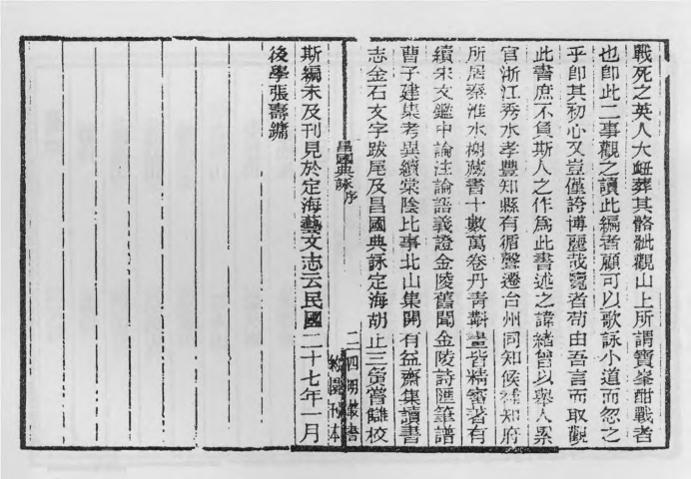 戰死之英人大衄葬其骼骴觀山上所謂寶峯酣戰者
也卽此二事觀之讀此編者顧可以歌詠小道而忽之
乎卽其初心又豈僅誇博麗哉覽者苟由吾言而取觀
此書庶不負斯人之作爲此書述之諱緒曾以舉人累
官浙江秀水孝豐知縣有循聲遷台州同知候補知府
所居秦淮水榭藏書十數萬卷丹青斠畫皆精審著有
續宋文鑑中論注論語義證金陵舊聞金陵詩匯筆譜
曹子建集考異續棠陰比事北山集開有益齋集讀書
志金石文字跋尾及昌國典詠定海胡止三夤嘗讎校
昌國典詠序
二
四明叢書
約園刊本
斯編未及刊見於定海藝文志云民國二十七年一月
後學張壽鏞